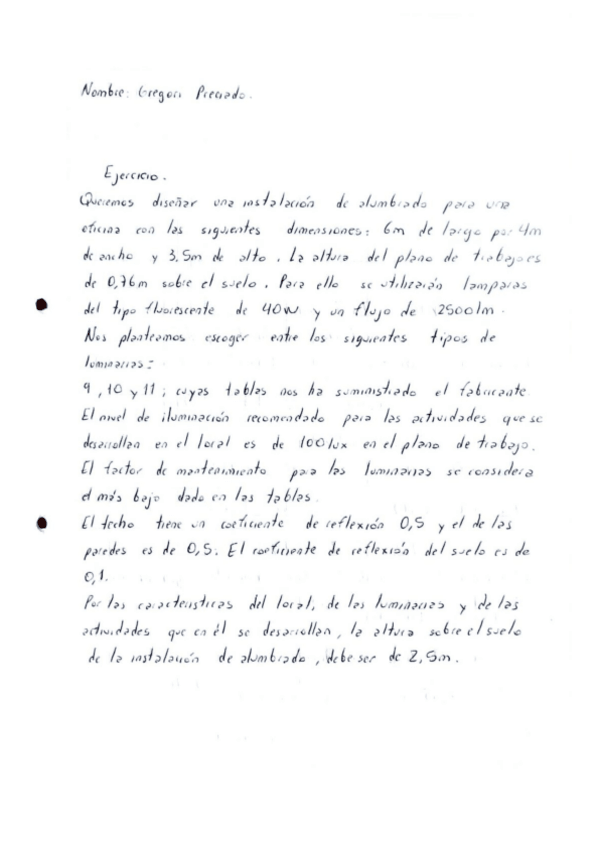 Nombre: Gregori Preciado.
Ejercicio.
Queremos diseñar una instalación de alumbrado para una
oficina con las siguientes dimensiones: 6m de largo por 4m
de ancho y 3,5m de alto. La altura del plano de trabajo es
de 0,76m sobre el suelo. Para ello se utilizarán lamparas
del tipo fluorescente de 40W y un flujo de 2500lm.
Nos planteamos escoger entre los siguientes tipos de
luminarias:
9, 10 y 11; cuyas tablas nos ha suministrado el fabricante.
El nivel de iluminación recomendado para las actividades que se
desarrollan en el local es de 100lux en el plano de trabajo.
El factor de mantenimiento para las luminarias se considera
el más bajo dado en las tablas.
El techo tiene un coeficiente de reflexión 0,5 y el de las
paredes es de 0,5. El coeficiente de reflexión del suelo es de
0,1.
Por las caracteristicas del local, de las luminarias y de las
actividades que en él se desarrollan, la altura sobre el suelo
de la instalación de alumbrado, debe ser de 2,5m.